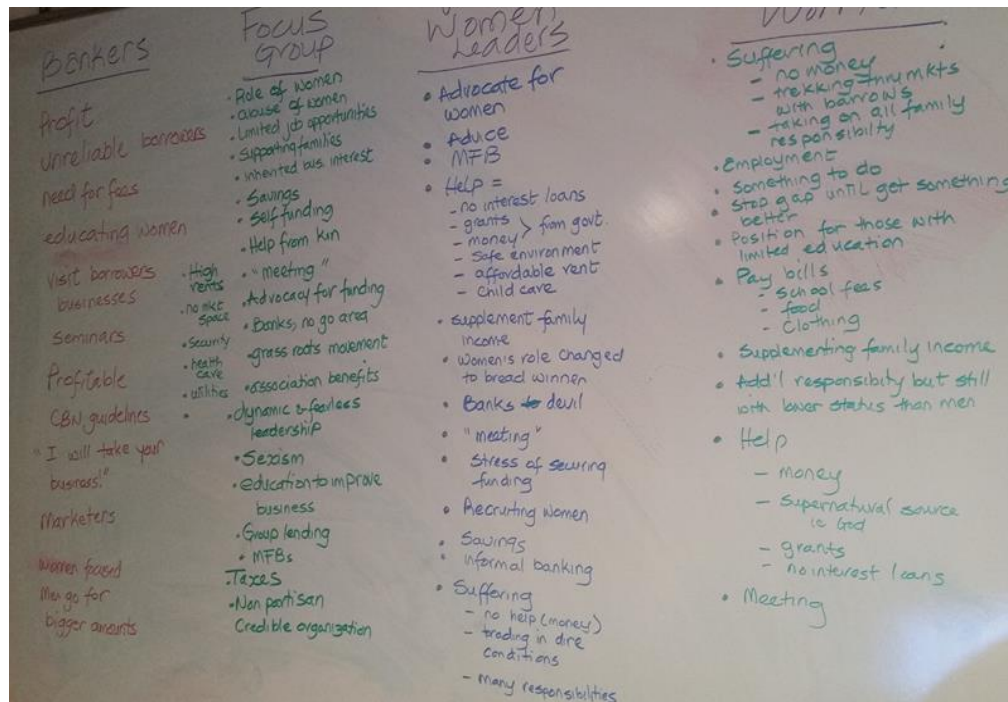 Bankers
Profit
Unreliable borrowers
need for fees
educating women
visit borrowers
businesses
Seminars
Profitable
CBN guidelines
"I will take your
business!"
Marketers
Women focused
Men go for
bigger amounts
Focus
Group
• Role of women
• abuse of women
• Limited job opportunities
• Supporting families
• inherited bus. interest
• Savings
• Self funding
• Help from kin
• "meeting"
• Advocacy for funding
• Banks, no go area
• grass roots movement
• association benefits
• dynamic & fearless
leadership
• Sexism
• education to improve
business
• Group lending
• MFBs
• Taxes
• Non partisan
Credible organization
• High
rents
• no mkt
space
• Security
• health
care
• utilities
Women
Leaders
• Advocate for
women
• Advice
• MFB
• Help =
- no interest loans
- grants > from govt.
- money
- Safe environment
- affordable rent
- Child care
• supplement family
income
• Women's role changed
to bread winner
• Banks devil
• "meeting"
• Stress of securing
funding
• Recruiting women
• Savings
• informal banking
• Suffering
- no help (money)
- trading in dire
conditions
- many responsibilities
• Suffering
- no money
- trekking thru mkts
with barrows
- taking on all family
responsibilty
• Employment
• Something to do
• Stop gap until get something
better
• Position for those with
limited education
• Pay bills
- School fees
- food
- Clothing
• Supplementing family income
• Add'l responsibity but still
with lower status than men
• Help
- money
- Supernatural source
ie God
- grants
- no interest loans
• Meeting